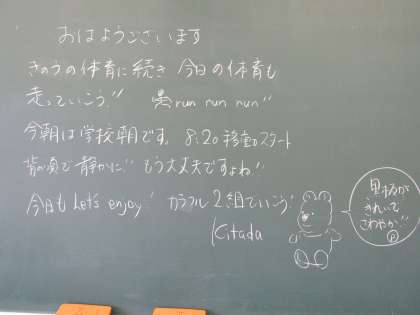 おはようございます
きのうの体育に続き 今日の体育も
走っていこう!! run run run!!
今朝は学校朝です。 8:20 移動スタート
背の順で静かに!! もう大丈夫ですよね!
今日も Let's enjoy! カラフル2組でいこう!
Kitada
きれいで
さわやか!!